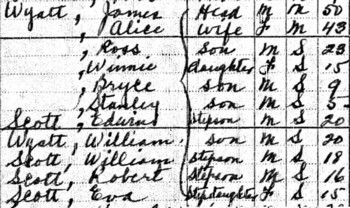 Wyatt, James Head M M 50
, Alice Wife F M 43
, Ross Son M S 23
, Winnie daughter F S 15
, Bryce Son M S 9
, Stanley son M S 5
Scott, Edwin Stepson M S 20
Wyatt, William son M S 20
Scott, William Stepson M S 18
Scott, Robert Stepson M S 16
Scott, Eva Stepdaughter F S 15